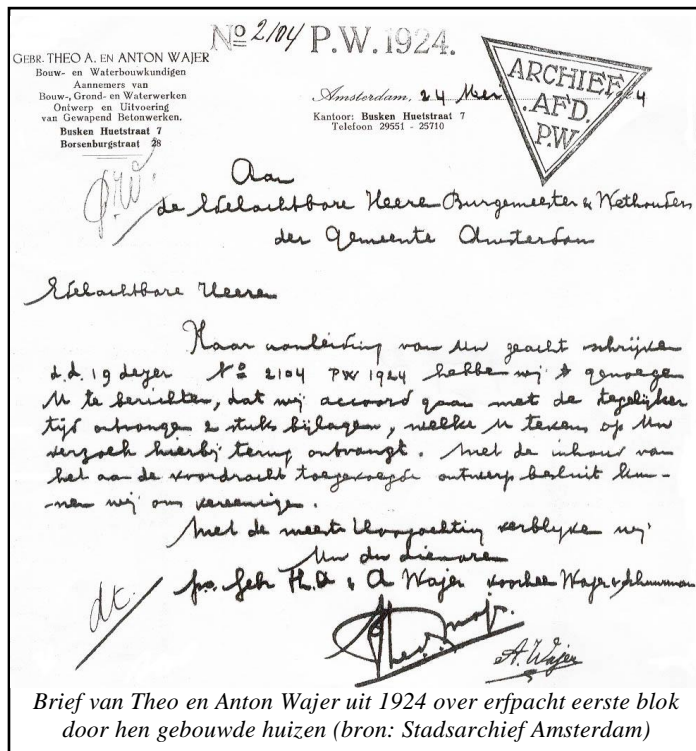 No 2104 P.W. 1924.
GEBR. THEO A. EN ANTON WAJER
Bouw- en Waterbouwkundigen
Aannemers van
Bouw-, Grond- en Waterwerken
Ontwerp en Uitvoering
van Gewapend Betonwerken.
Busken Huetstraat 7
Borsenburgstraat 28
Amsterdam, 24 Mei 24
Kantoor: Busken Huetstraat 7
Telefoon 29551 - 25710
ARCHIEF.
.AFD.
P.W
P.W.
Aan
de Edelachtbare Heeren Burgemeester & Wethouders
der Gemeente Amsterdam
Edelachtbare Heeren
Naar aanleiding van Uw geacht schrijven
d.d. 19 dezer No 2104 PW 1924 hebben wij 't genoegen
U te berichten, dat wij accoord gaan met de tegelijker
tijd ontvangen 2 stuks bijlagen, welke U tevens op Uw
verzoek hierbij terug ontvangt. Met de inhoud van
het aan de voordracht toegevoegde ontwerp besluit kun-
nen wij ons vereenigen.
Met de meeste Hoogachting verblijven wij
Uw dw dienaren
Gebr Th. A & A Wajer voorheen Wajer & Schuurman
A. Wajer
Brief van Theo en Anton Wajer uit 1924 over erfpacht eerste blok
door hen gebouwde huizen (bron: Stadsarchief Amsterdam)